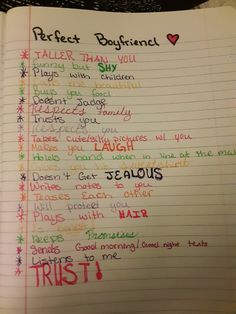 Perfect Boyfriend
* TALLER THAN YOU
* Funny but SHY
* Plays with children
* Buys you food
* Doesn't Judge
* Respects Family
* Trusts you
* Respects you
* Takes cute/silly pictures w/ you
* Makes you LAUGH
* Holds hand when in line at the
* Doesn't Get JEALOUS
* Writes notes to you
* Teases Each other
* Will protect you
* Plays with HAIR
* Keeps Promises
* Sends Good morning/Good night texts
* Listens to me
* TRUST!